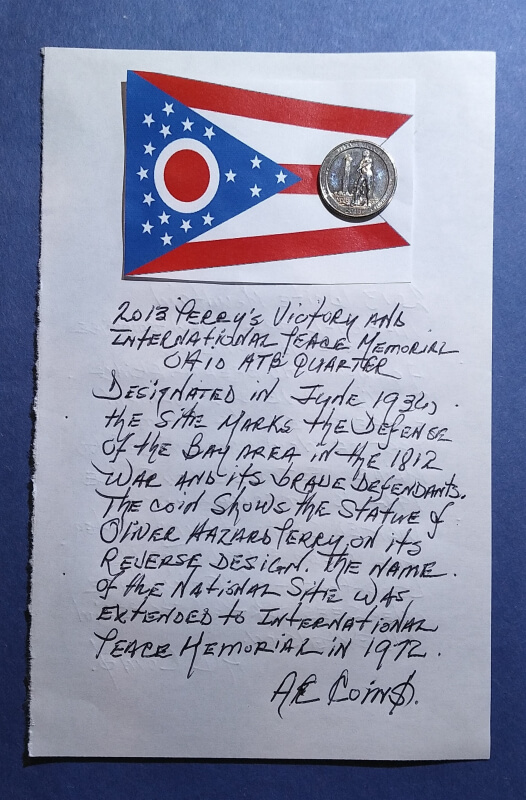 2013 Perry's Victory and
International Peace Memorial
Ohio ATB Quarter
Designated in June 1936,
the site marks the defense
of the Bay Area in the 1812
War and its brave defendants.
The coin shows the statue of
Oliver Hazard Perry, on its
reverse design. The name
of the national site was
extended to International
Peace Memorial in 1972.
AE Coin$.